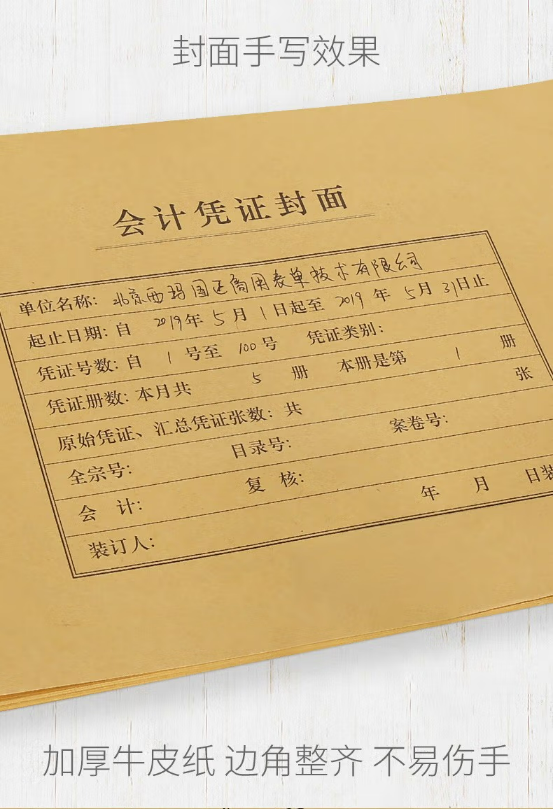 封面手写效果
会计凭证封面
单位名称: 北京西玛国正商用表单技术有限公司
起止日期: 自 2019年 5月 1日起至 2019年 5月 31日止
凭证号数: 自 1 号至 100号 凭证类别:
凭证册数: 本月共 5 册 本册是第 1 册
原始凭证、汇总凭证张数: 共 张
全宗号: 目录号: 案卷号:
会 计: 复 核:
装订人: 年 月 日装
加厚牛皮纸 边角整齐 不易伤手